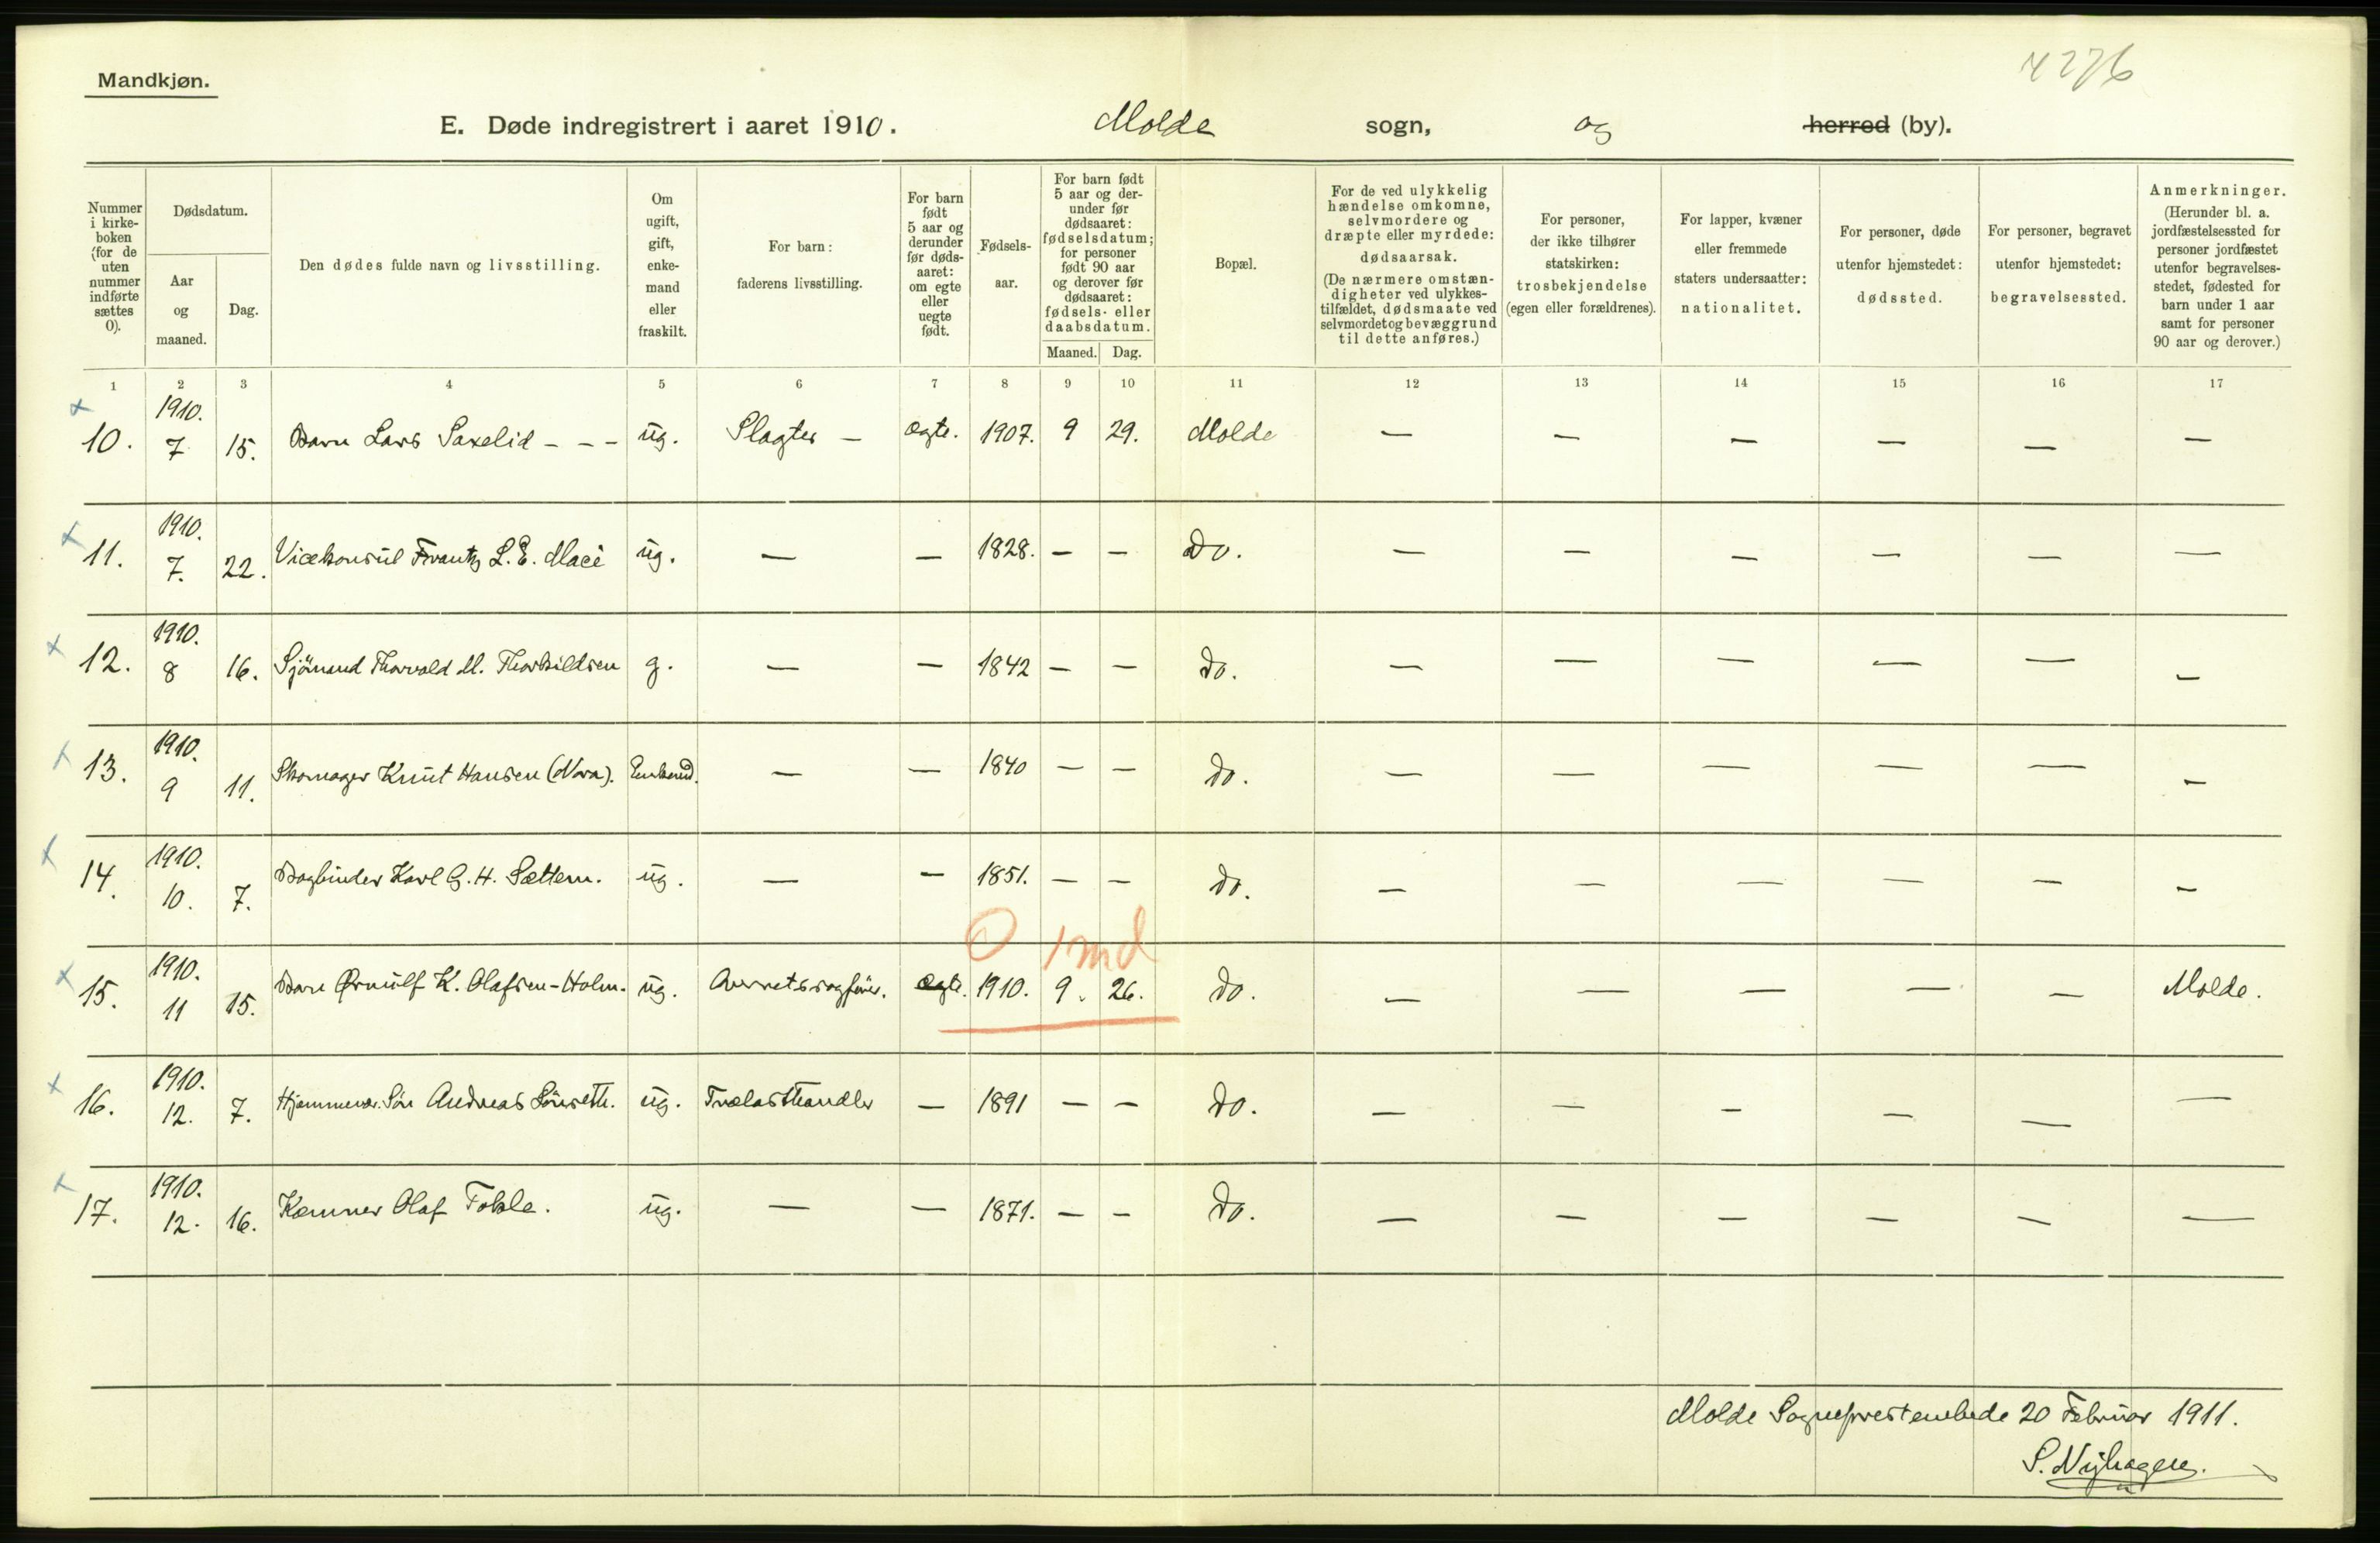 4276
Mandkjøn.
E. Døde indregistrert i aaret 1910. Molde sogn, og herred (by).
Nummer i kirkeboken (for de uten nummer indførte sættes 0).
Dødsdatum.
Aar og maaned.
Dag.
Den dødes fulde navn og livsstilling.
Om ugift, gift, enkemand eller fraskilt.
For barn: faderens livsstilling.
For barn født 5 aar og derunder før dødsaaret: om egte eller uegte født.
Fødselsaar.
For barn født 5 aar og derunder før dødsaaret: fødselsdatum; for personer født 90 aar og derover før dødsaaret: fødsels- eller daabsdatum.
Maaned. Dag.
Bopæl.
For de ved ulykkelig hændelse omkomne, selvmordere og dræpte eller myrdede: dødsaarsak. (De nærmere omstændigheter ved ulykkestilfældet, dødsmaate ved selvmordet og bevæggrund til dette anføres.)
For personer, der ikke tilhører statskirken: trosbekjendelse (egen eller forældrenes).
For lapper, kvæner eller fremmede staters undersaatter: nationalitet.
For personer, døde utenfor hjemstedet: dødssted.
For personer, begravet utenfor hjemstedet: begravelsessted.
Anmerkninger. (Herunder bl. a. jordfæstelsessted for personer jordfæstet utenfor begravelsesstedet, fødested for barn under 1 aar samt for personer 90 aar og derover.)
1 2 3 4 5 6 7 8 9 10 11 12 13 14 15 16 17
10. 1910. 7 15. Barn Lars Saxelid - - - ug. Slagter - ægte. 1907. 9 29. Molde — — — — — —
11. 1910. 7. 22. Vicekonsul Frantz L. E. Macé ug. — — 1828. — — Do. — — — — — —
12. 1910. 8 16. Sjömand Thorvald M. Thorkildsen g. — — 1842 — — Do. — — — — — —
13. 1910. 9 11. Skomager Knut Hansen (Nora). Enkemd. — — 1840 — — Do. — — — — — —
14. 1910. 10. 7. Bogbinder Karl G. H. Sættem. ug. — — 1851. — — Do. — — — — — —
0 1 md
15. 1910. 11 15. Barn Ørnulf K. Olafsen-Holm. ug. Overretssagfører. ægte. 1910. 9. 26. Do. — — — — — Molde.
16. 1910. 12. 7. Hjemmevær. Søn Andreas ug. Trælasthandler — 1891 — — Do. — — — — — —
17. 1910. 12. 16. Kæmner Olaf Tokle. ug. — — 1871. — — Do. — — — — — —
Molde Sogneprestembede 20 Februar 1911.
S. Nyhagen.